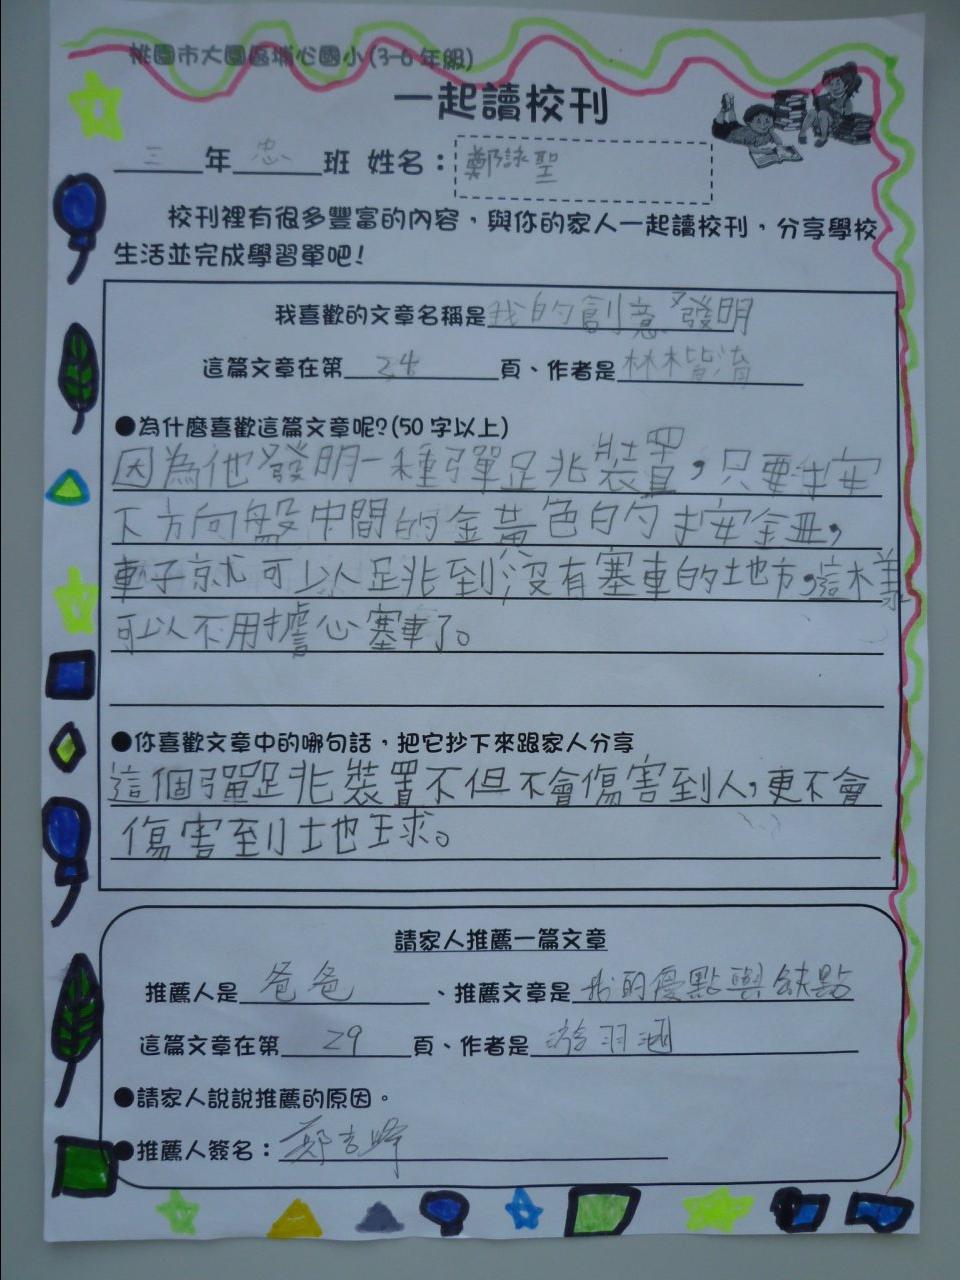 桃園市大園區埔心國小(3-6年級)
一起讀校刊
三年忠班 姓名：鄭詠聖
校刊裡有很多豐富的內容，與你的家人一起讀校刊，分享學校
生活並完成學習單吧！
我喜歡的文章名稱是我的創意發明
這篇文章在第24頁、作者是林楷淯
●為什麼喜歡這篇文章呢?(50字以上)
因為他發明一種彈跳裝置，只要按
下方向盤中間的金黃色的按鈕，
車子就可以跳到沒有塞車的地方，這樣
可以不用擔心塞車了。
●你喜歡文章中的哪句話，把它抄下來跟家人分享
這個彈跳裝置不但不會傷害到人，更不會
傷害到地球。
請家人推薦一篇文章
推薦人是爸爸、推薦文章是我的優點與缺點
這篇文章在第29頁、作者是游羽涵
●請家人說說推薦的原因。
●推薦人簽名：鄭吉峰